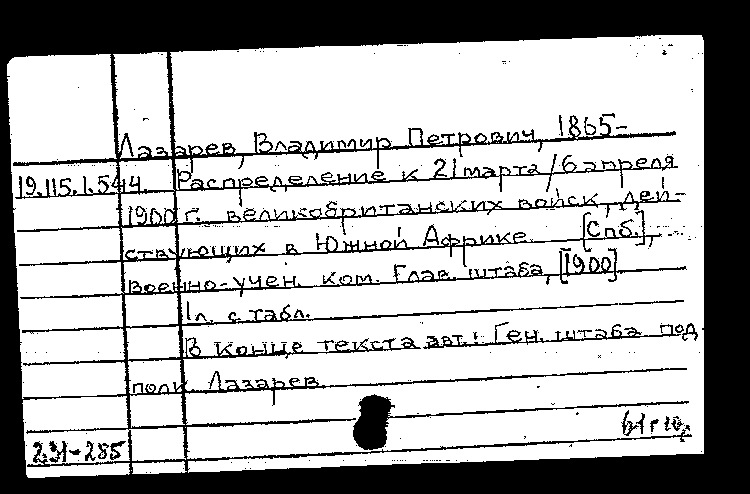 Лазарев, Владимир Петрович, 1865-
19.115.1.544. Распределение к 21 марта/6 апреля
1900 г. великобританских войск, дей-
ствующих в Южной Африке. [Спб.],
Военно-учен. ком. Глав. штаба, [1900].
1 л. с табл.
В конце текста авт.: Ген. штаба под-
полк. Лазарев.
231-285